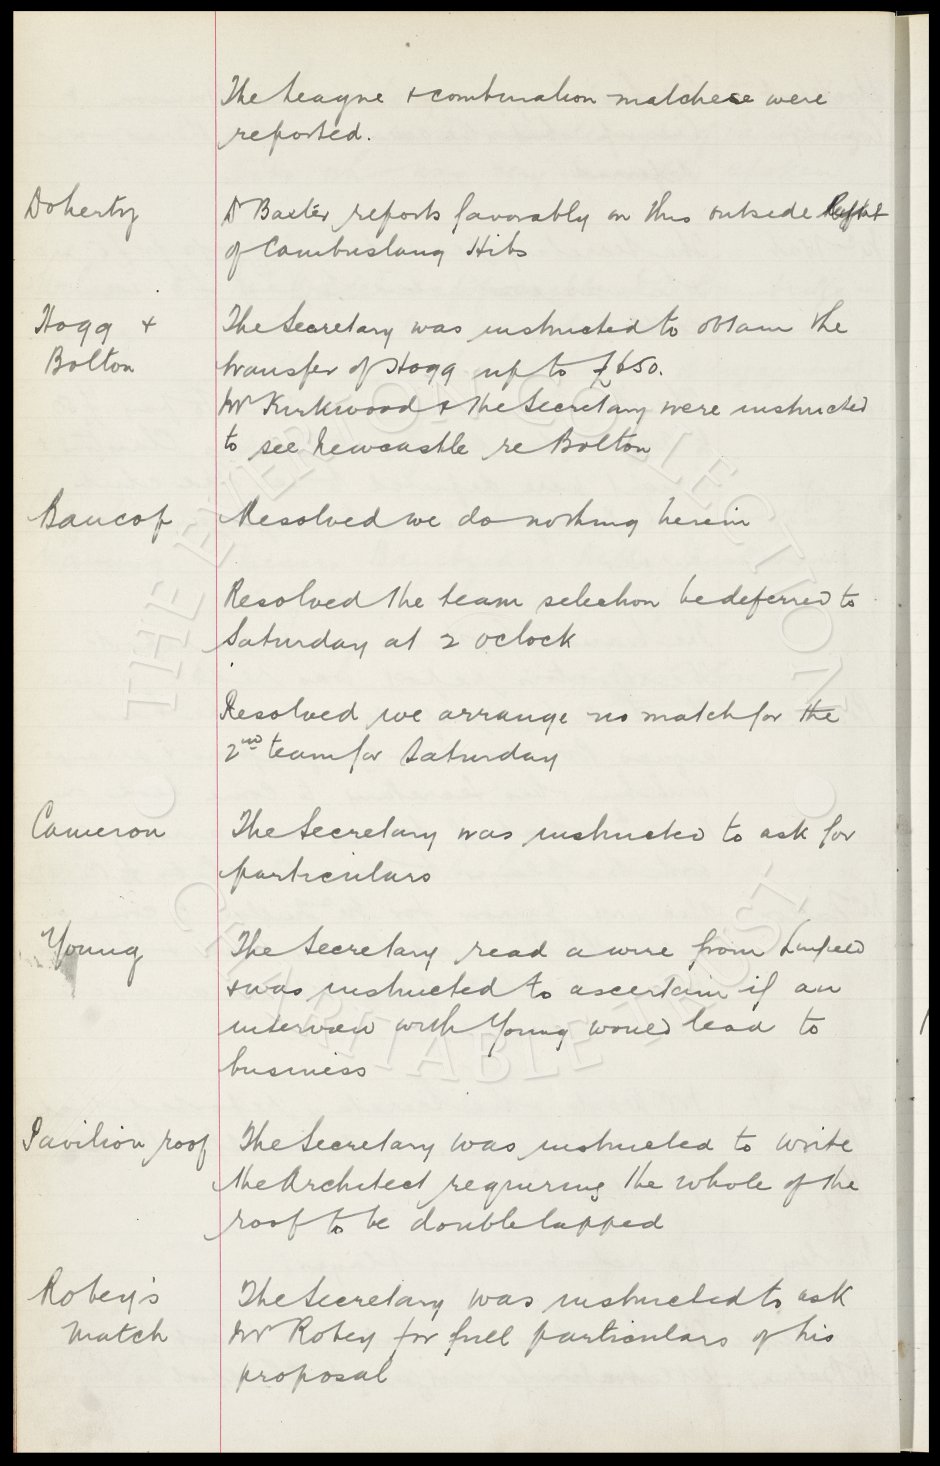 The League & combination matches were
reported.
Doherty
Dr Baxter reports favorably on this outside
of Cambuslang Hibs
Hogg &
Bolton
The Secretary was instructed to obtain the
transfer of Hogg up to £650.
Mr Kirkwood & the Secretary were instructed
to see Newcastle re Bolton
Resolved we do nothing herein
Resolved the team selection be deferred to
Saturday at 2 oclock
Resolved we arrange no match for the
2nd team for Saturday
Cameron
The Secretary was instructed to ask for
particulars
Young
The Secretary read a wire from Linfield
& was instructed to ascertain if an
interview with Young would lead to
business
Pavilion roof
The Secretary was instructed to write
the Architect requiring the whole of the
roof to be double lapped
Robey's
match
The Secretary was instructed to ask
Mr Robey for full particulars of his
proposal
THE EVERTON COLLECTION
CHARITABLE TRUST